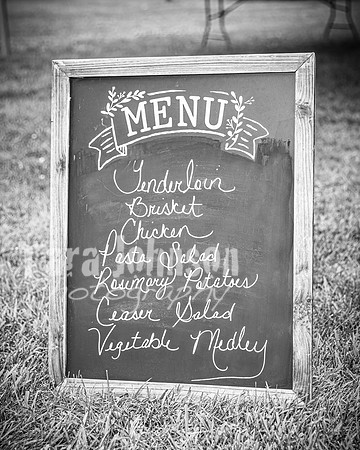 MENU
Tenderloin
Brisket
Chicken
Pasta Salad
Rosemary Potatoes
Ceaser Salad
Vegetable Medley
Tara Johnson
Photography